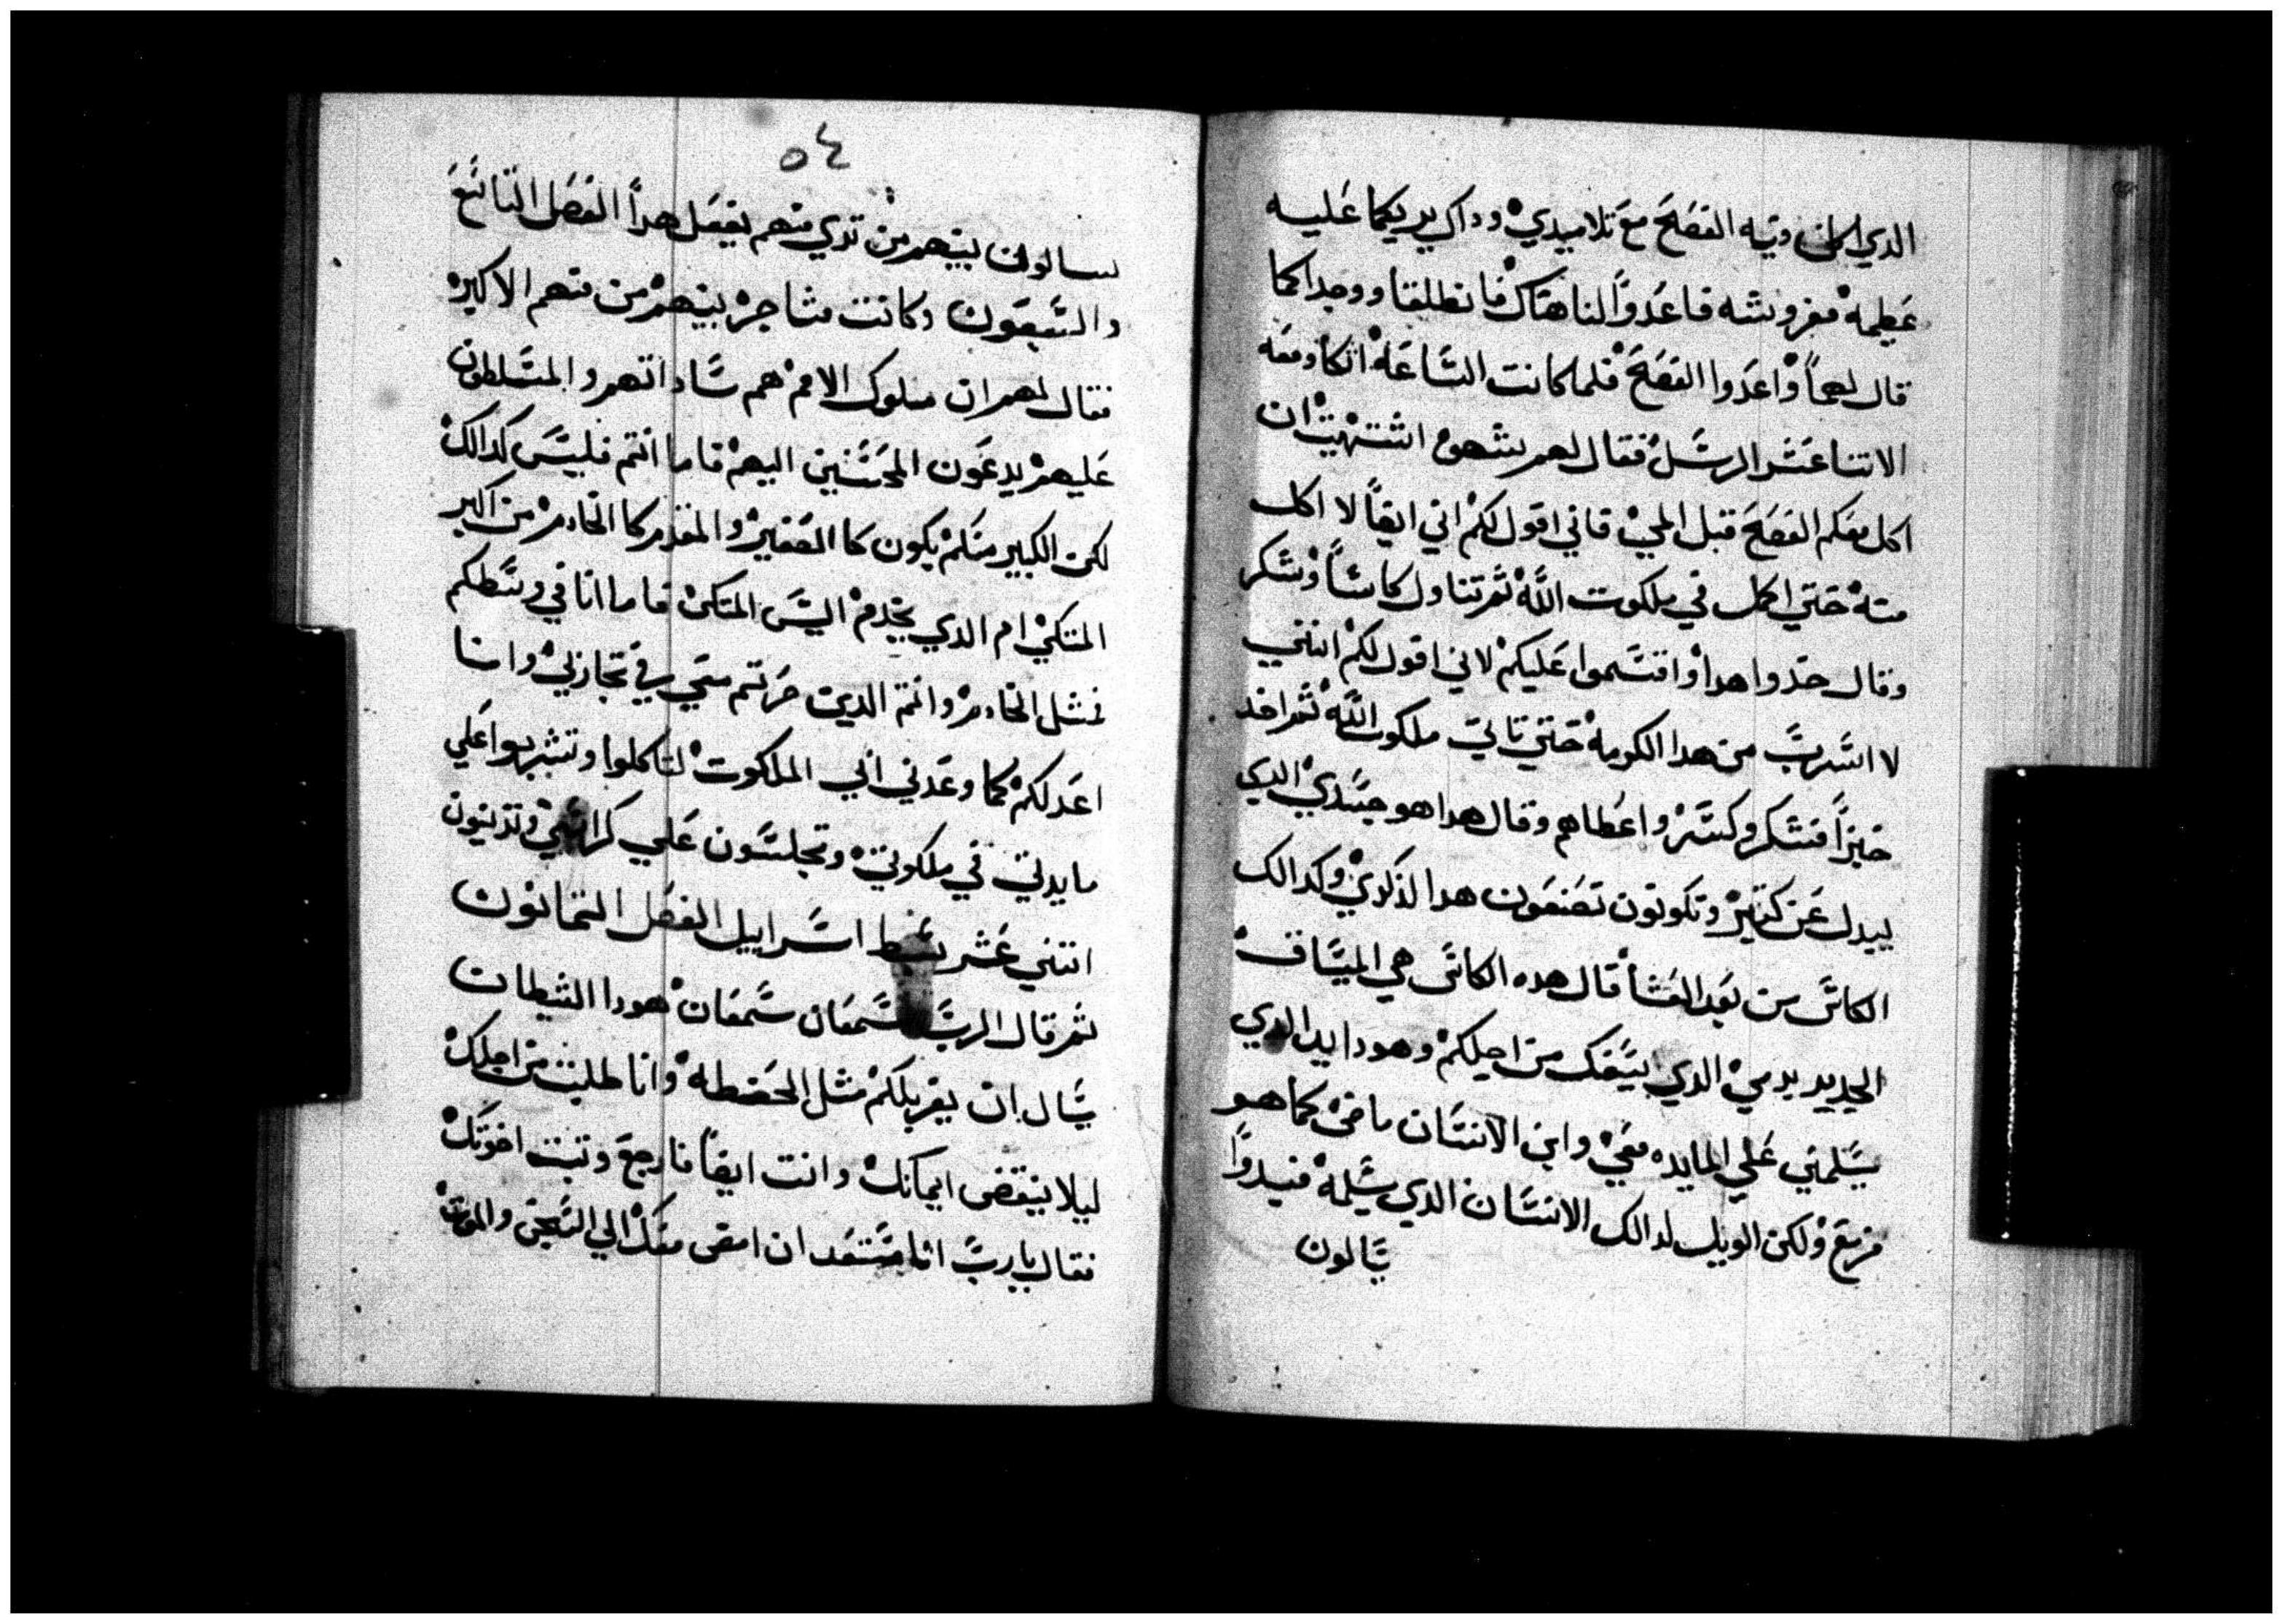 الدي اكل فيه الفصح مع تلاميدي وداك يريكما عليه
عظيمه مفروشه فاعدوا لنا هناك فانطلقا ووجدا كما
قال لهما واعدوا الفصح فلما كانت الساعه اتكا ومعه
الاتنا عشر الرسل فقال لهم شهوه اشتهيت ان
اكل معكم الفصح قبل المي فاني اقول لكم اني ايضا لا اكل
منه حتي اكمل في ملكوت الله ثم تناول كاسا وشكر
وقال خدوا هدا واقتسموا عليكم لاني اقول لكم انني
لا اشرب من هدا الكرمه حتي تاتي ملكوت الله ثم اخد
خبزا فشكر وكسر واعطاهم وقال هدا هو جسدي الدي
يبدل عن كتير وتكونون تصنعون هدا لدكري وكدالك
الكاس من بعد العشا قال هده الكاس هي الميتاق
الجديد بدمي الدي يسفك من اجلكم وهودا يد الدي
يسلمني علي المايده معي وابن الانسان ماضي كما هو
مزمع ولكن الويل لدالك الانسان الدي يسلمه فبدوا
يسالون
٥٤
يسالون بينهم من تري منهم يفعل هدا الفصل التاسع
والسبعون وكانت مشاجره بينهم من منهم الاكبر
فقال لهم ان ملوك الامم هم ساداتهم والمسلطون
عليهم يدعون المحسنين اليهم فاما انتم فليس كدالك
لكن الكبير منكم يكون كا الصغير والمقدم كا الخادم من اكبر
المتكي ام الدي يخدم اليس المتكي فاما انا في وسطكم
فمثل الخادم وانتم الدين صرتم معي في تجاربي وانا
اعد لكم كما وعدني ابي الملكوت لتاكلوا وتشربوا علي
مايدتي في ملكوتي وتجلسون علي كراسي وتدينون
اتني عشر سبط اسراييل الفصل التمانون
ثم قال الرب لسمعان سمعان هودا الشيطان
يسال ان يغربلكم مثل الحنطه وانا طلبت من اجلك
ليلا ينقص ايمانك وانت ايضا فارجع وتبت اخوتك
فقال يارب انا مستعد ان امضي معك الي السجن والموت